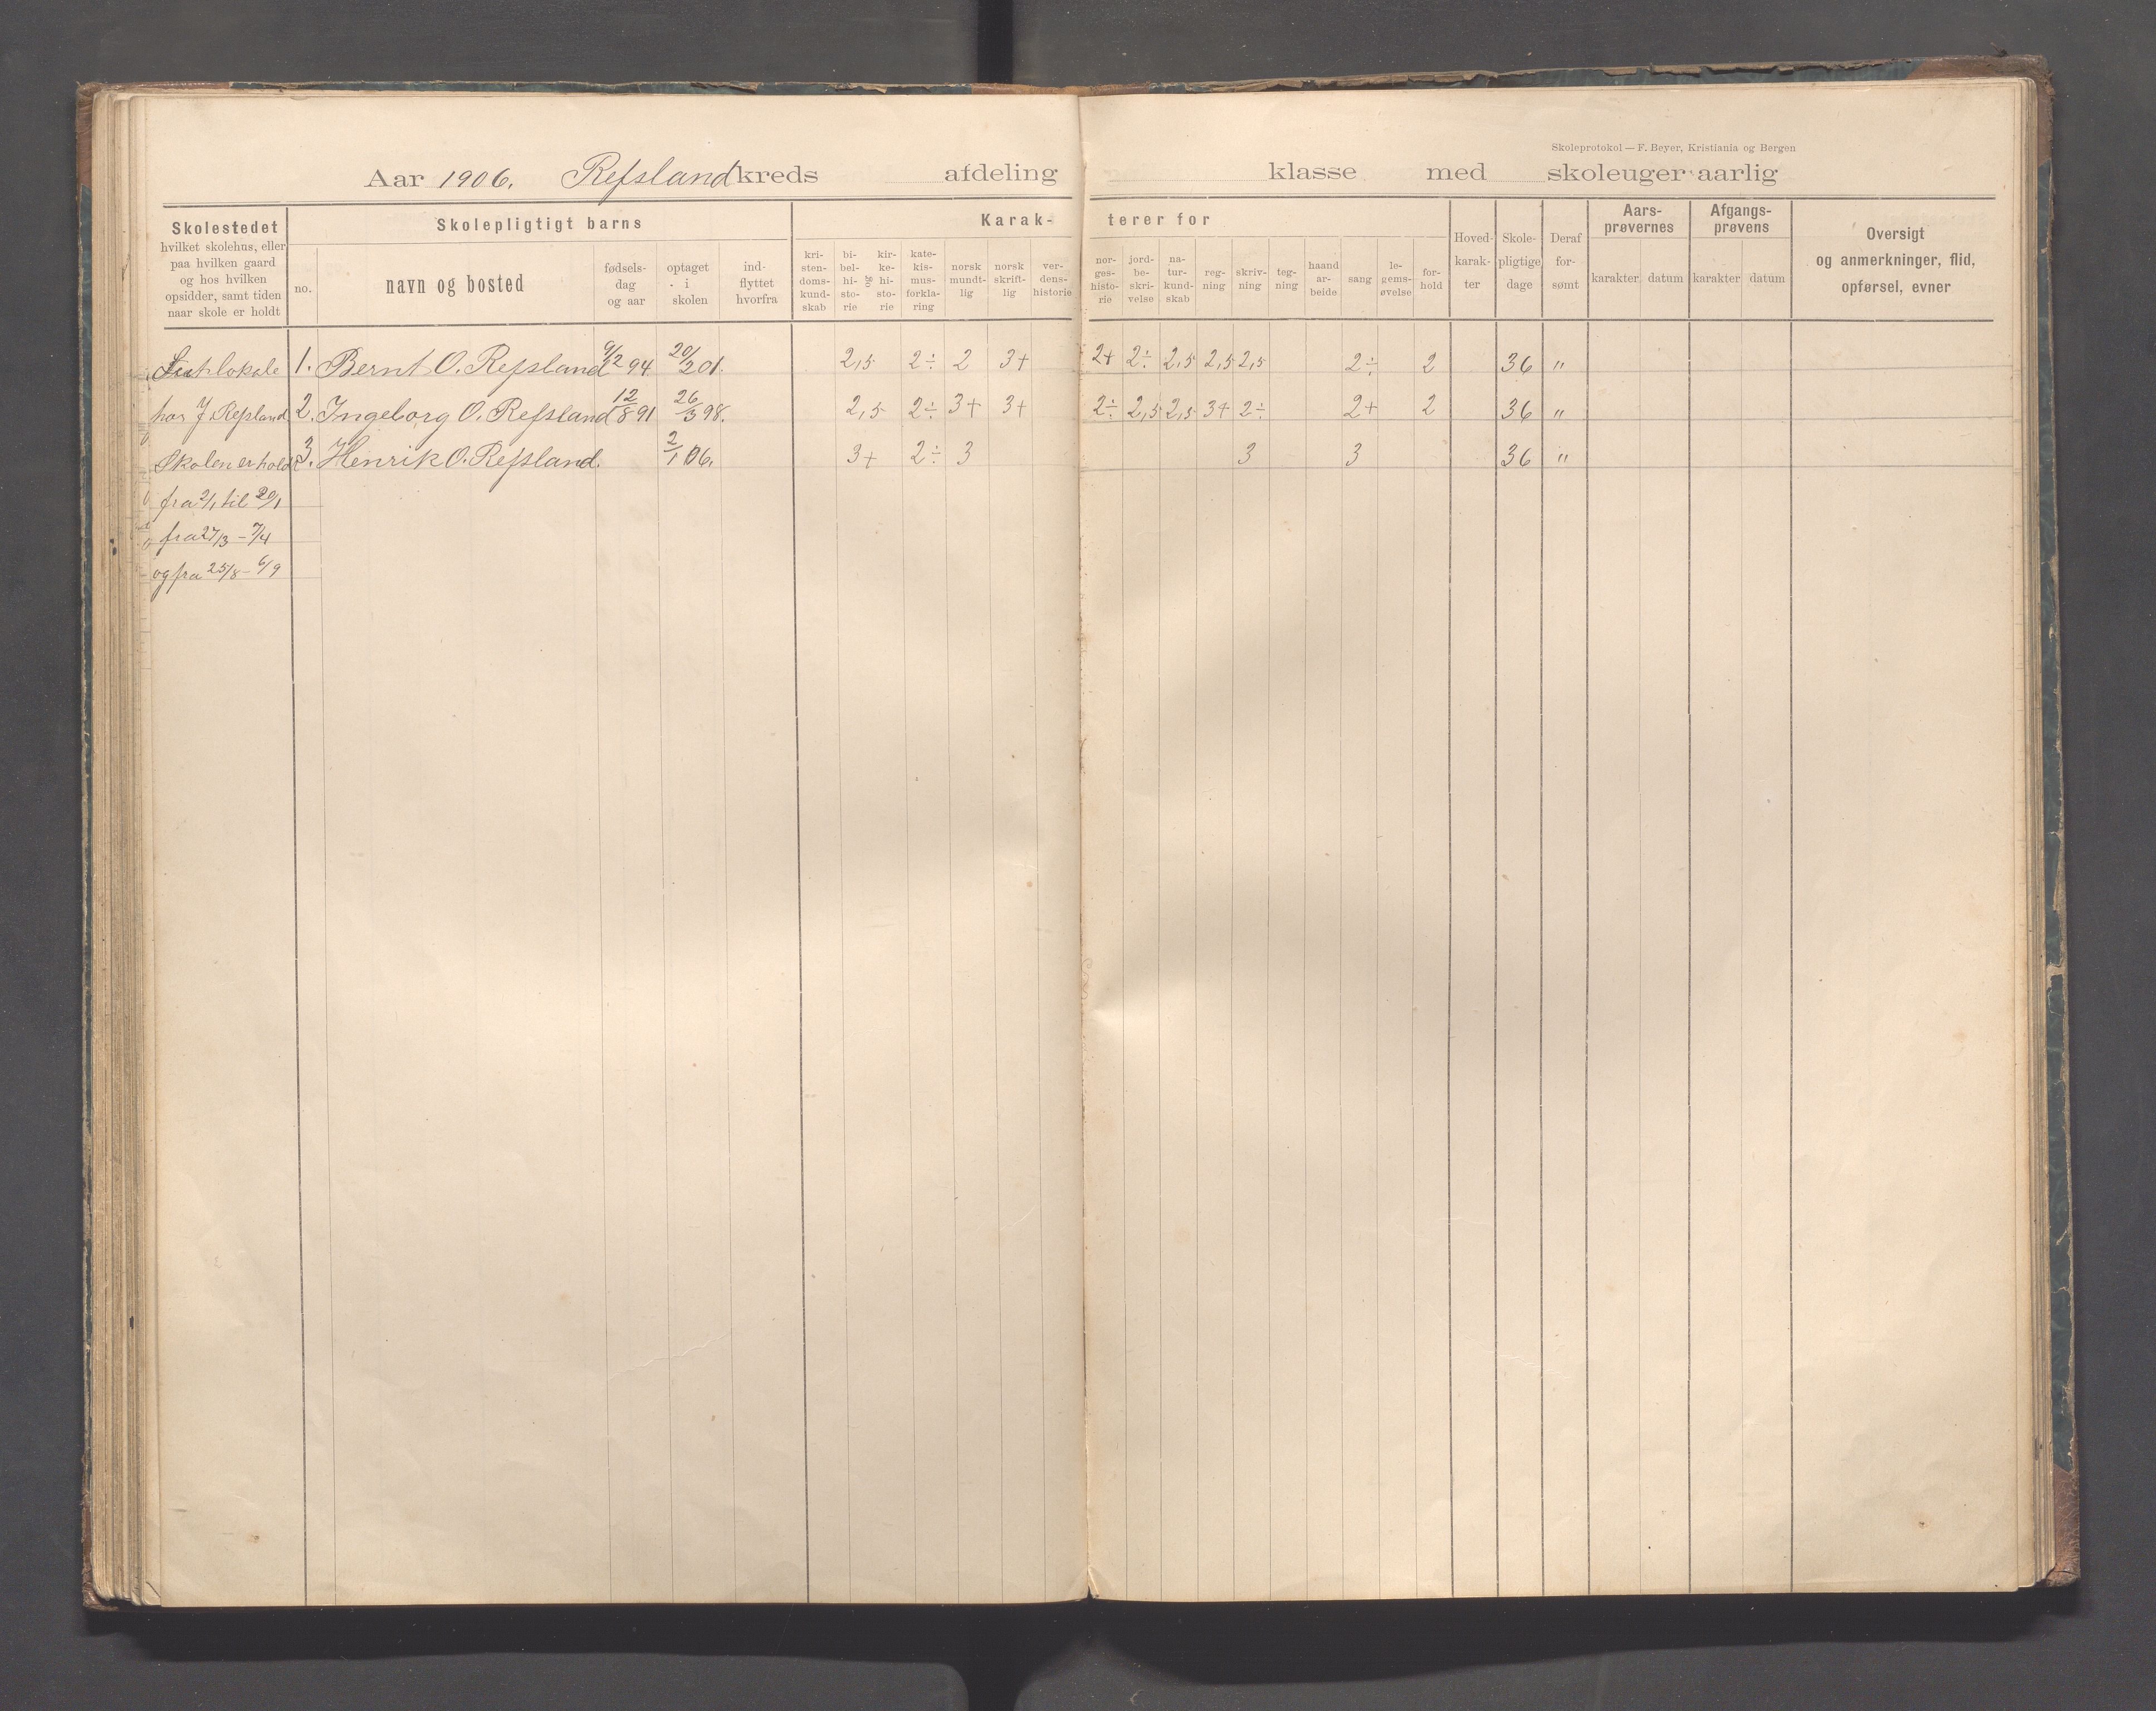 Skoleprotokol — F. Beyer, Kristiania og Bergen
Aar 1906. Refsland kreds afdeling klasse med skoleuger aarlig
Skolestedet
hvilket skolehus, eller
paa hvilken gaard
og hos hvilken
opsidder, samt tiden
naar skole er holdt
Skolepligtigt barns
no.
navn og bosted
fødsels-
dag
og aar
optaget
i
skolen
ind-
flyttet
hvorfra
Karak-
terer for
kri-
sten-
doms-
kund-
skab
bi-
bel-
hi-
sto-
rie
og
kir-
ke-
hi-
sto-
rie
kate-
kis-
mus-
forkla-
ring
norsk
mundt-
lig
norsk
skrift-
lig
ver-
dens-
historie
nor-
ges-
histo-
rie
jord-
be-
skri-
velse
na-
tur-
kund-
skab
reg-
ning
skriv-
ning
teg-
ning
haand
ar-
beide
sang
le-
gems-
øvelse
for-
hold
Hoved-
karak-
ter
Skole-
pligtige
dage
Deraf
for-
sømt
Aars-
prøvernes
karakter datum
Afgangs-
prøvens
karakter datum
Oversigt
og anmerkninger, flid,
opførsel, evner
lokale 1. Bernt O. Refsland 9/12 94. 20/2 01. 2,5 2÷ 2 3+ 2+ 2÷ 2,5 2,5 2,5 2÷ 2 36 "
hos J. Refsland 2. Ingeborg O. Refsland 12/8 91 26/3 98. 2,5 2÷ 3+ 3+ 2÷ 2,5 2,5 3+ 2÷ 2+ 2 36 "
Skolen er holdt 3. Henrik O. Refsland. 2/1 06. 3+ 2÷ 3 3 3 36 "
fra 2/1 til 20/1
fra 27/3 – 7/4
og fra 25/8 – 6/9